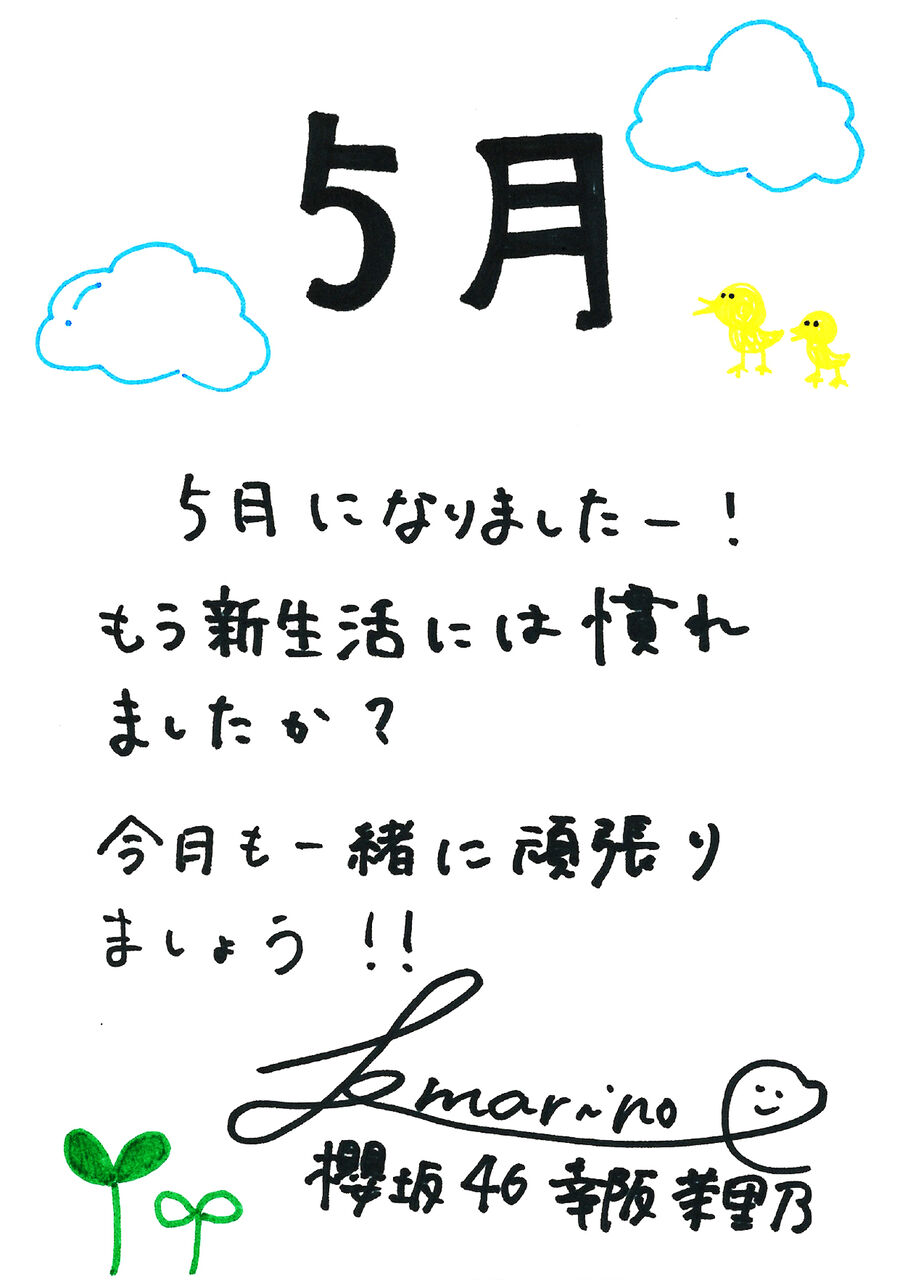 5月
5月になりましたー!
もう新生活には慣れ
ましたか?
今月も一緒に頑張り
ましょう!!
marino
櫻坂46 幸阪茉里乃